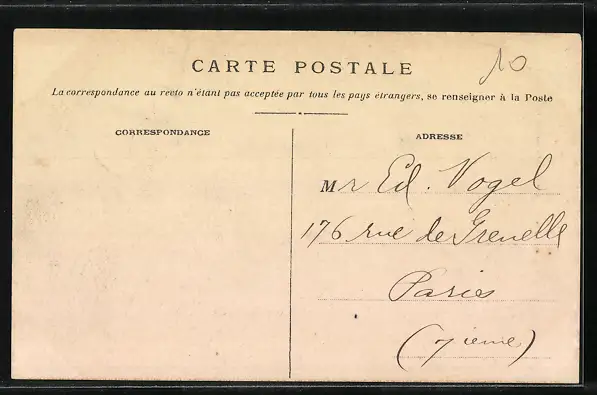 CARTE POSTALE
10
La correspondance au recto n'étant pas acceptée par tous les pays étrangers, se renseigner à la Poste
CORRESPONDANCE
ADRESSE
Mr Ed. Vogel
176 rue de Grenelle
Paris
(7ieme)